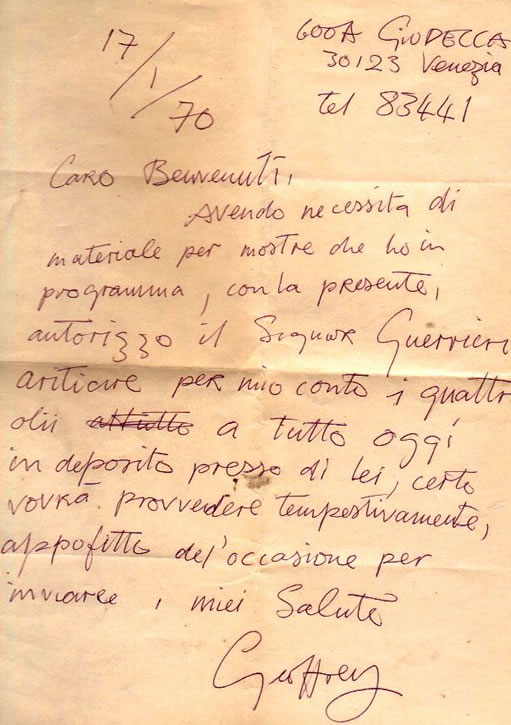 600A GIUDECCA
30123 Venezia
tel 83441
17/1/70
Caro Benvenuti,
Avendo necessita di
materiale per mostre che ho in
programma, con la presente,
autorizzo il Signor Guerrieri
a ritirare per mio conto i quattr
olii attutto a tutto oggi
in deposito presso di lei, certo
vorrà provvedere tempestivamente,
appofitto del'occasione per
inviarle i miei Saluto
Geoffrey